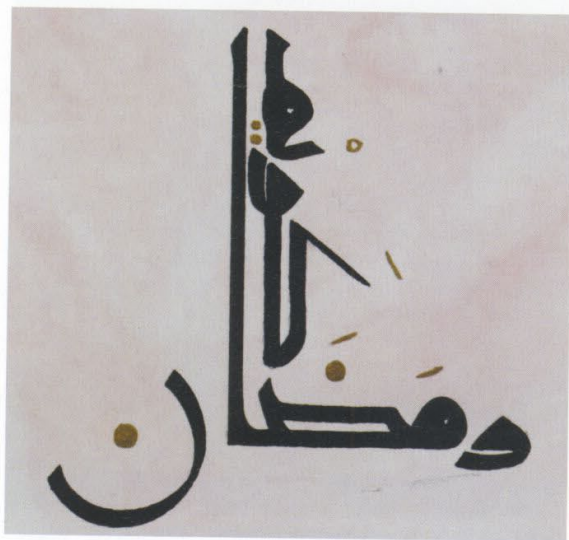 رمَضَان
كَريمْ